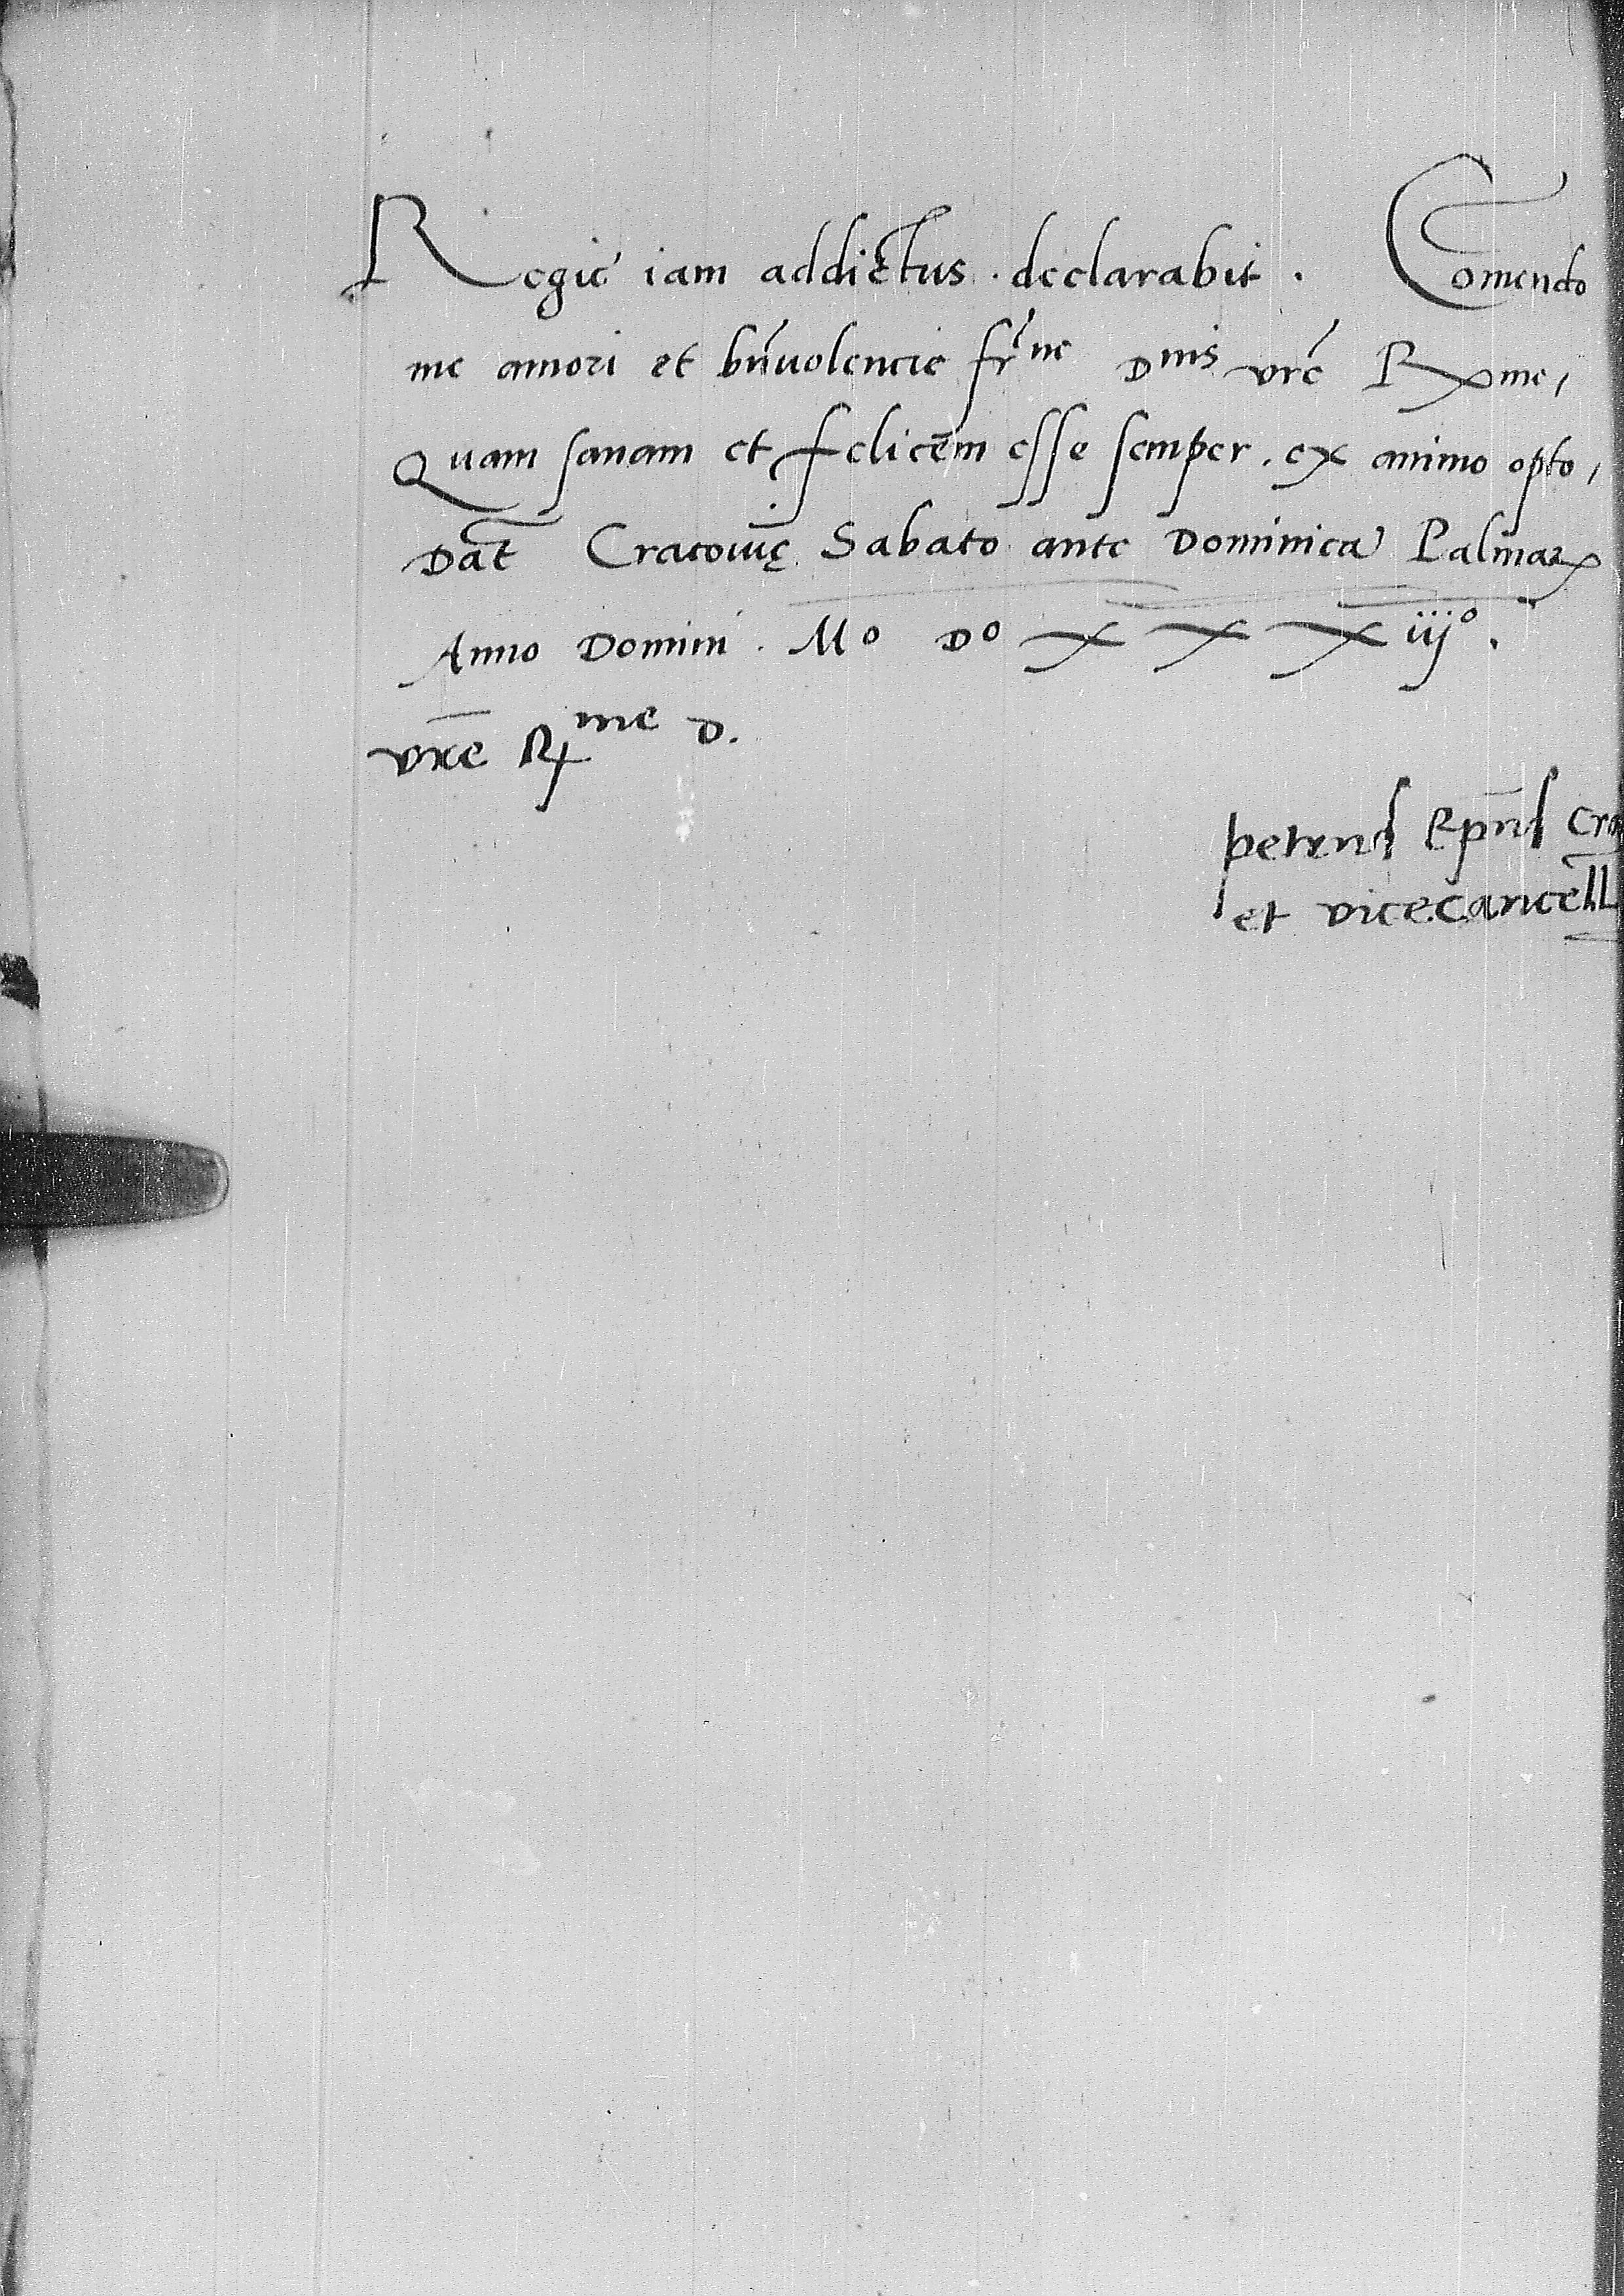 Regie iam addictus . declarabit . Comendo
me amori et bn̄uolencie fr̄ne Dnis vrē Rxme,
Quam sanam et felicem esse semper . ex animo opto,
Dat̄ Cracouię Sabato ante Dominicā Palmaꝝ
Anno Domini . Mo Do XXXiiijo .
vr̄e Rme D.
petrus Ep̄us Cra
et vicecancell